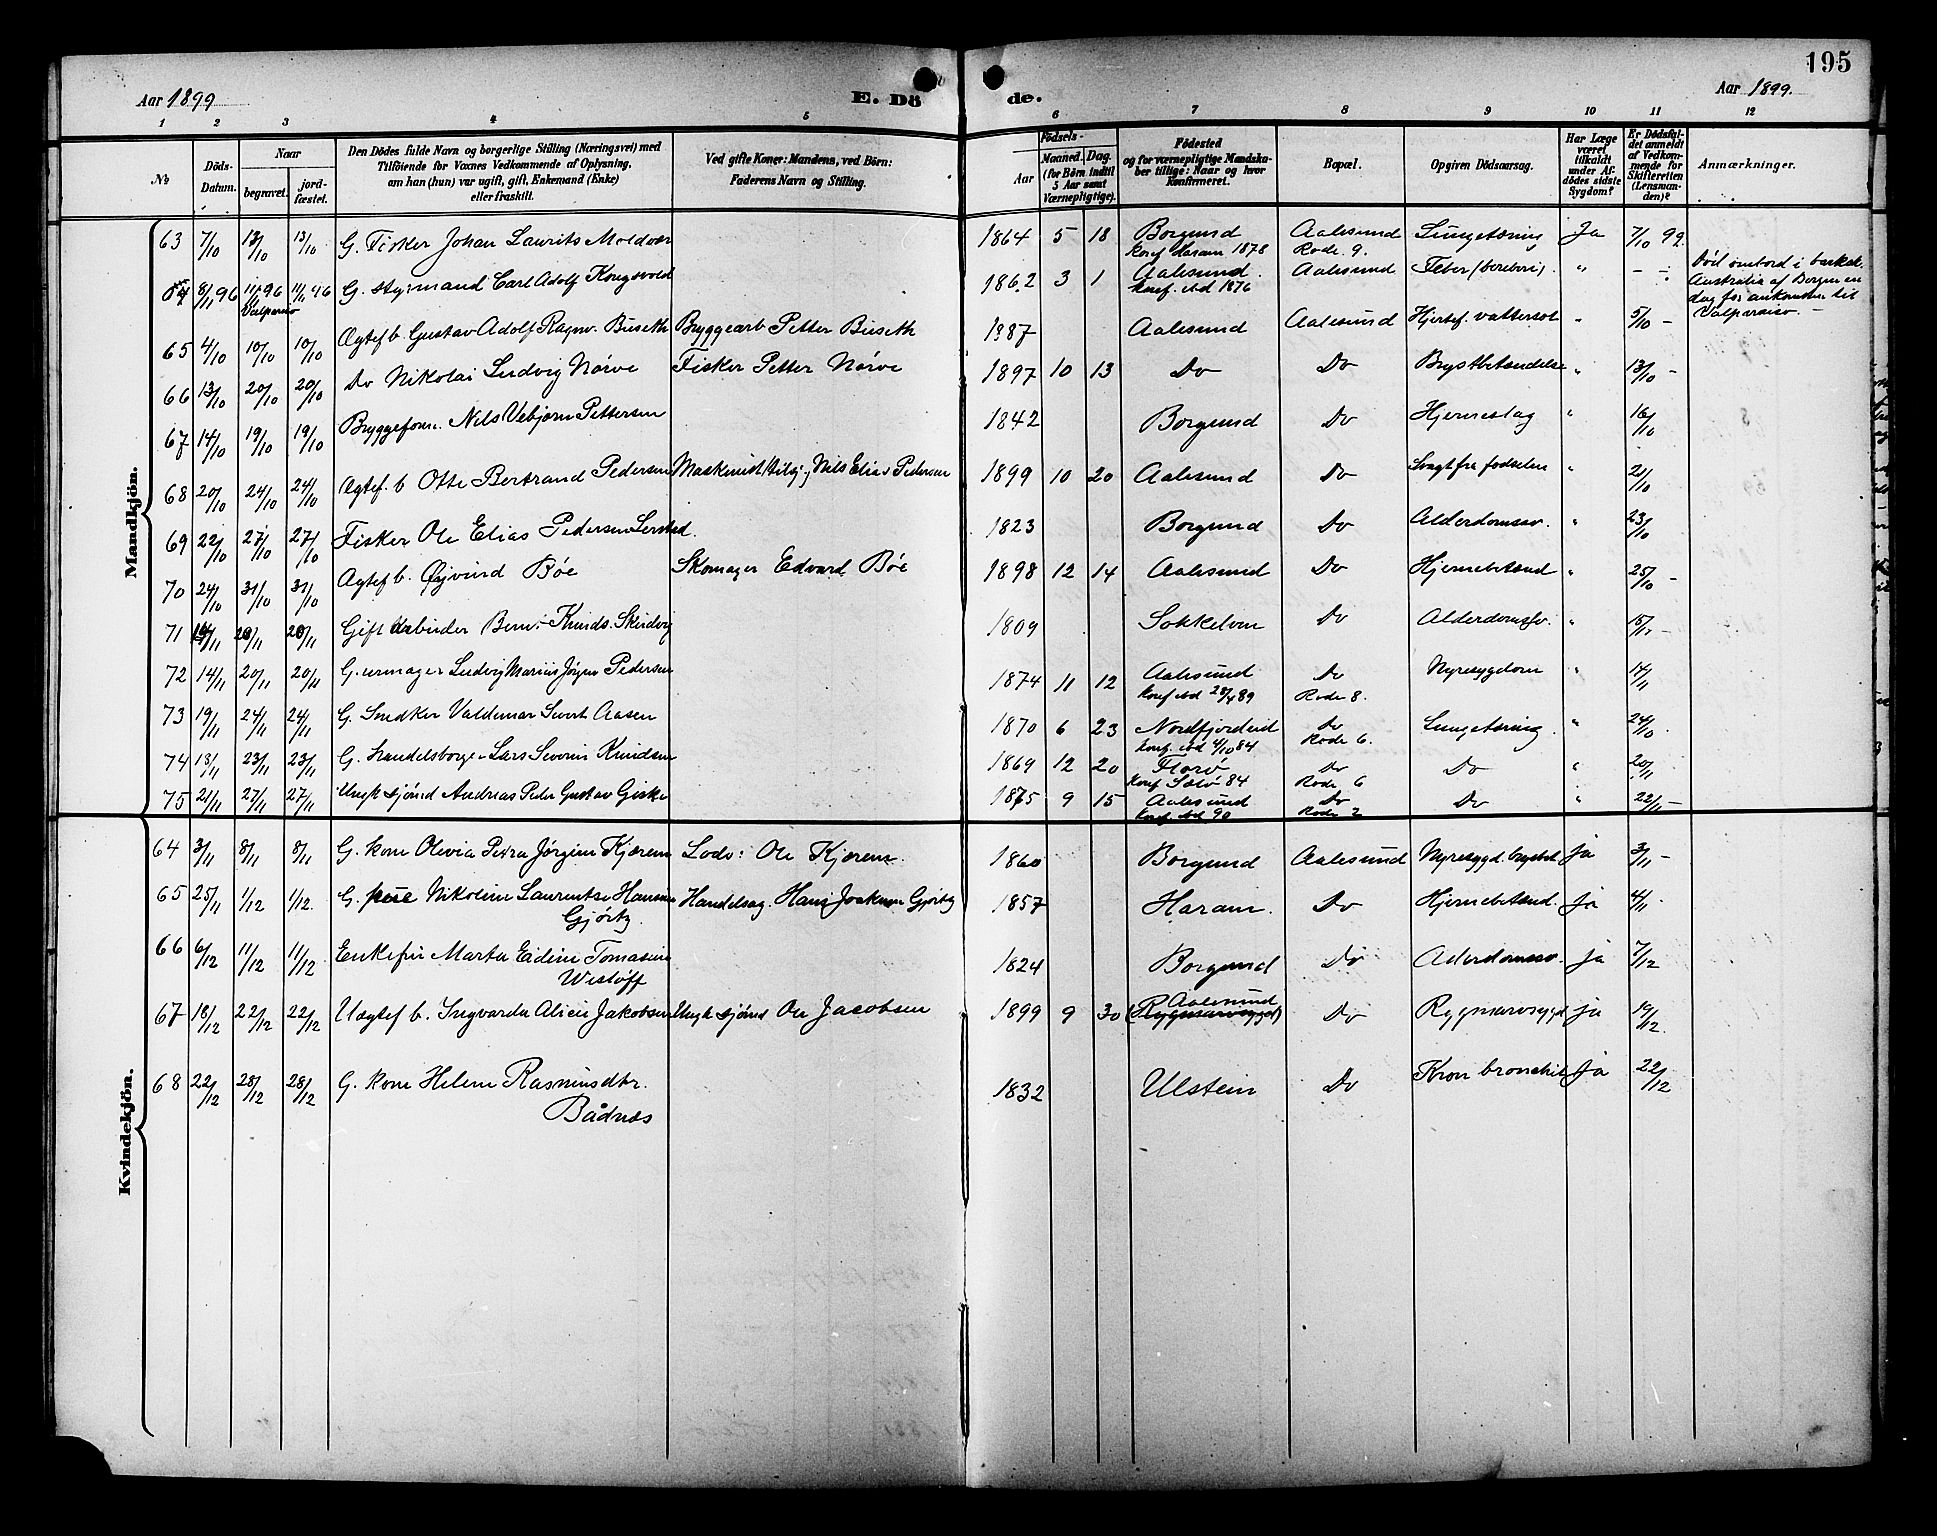 195
Aar 1899
E. Dö
de.
Aar 1899.
1 2 3 4 5 6 7 8 9 10 11 12
№
Döds-
Datum.
Naar
begravet.
jord-
fæstet.
Den Dödes fulde Navn og borgerlige Stilling (Næringsvei) med
Tilföiende for Voxnes Vedkommende af Oplysning,
om han (hun) var ugift, gift, Enkemand (Enke)
eller fraskilt.
Ved gifte Koner: Mandens, ved Börn:
Faderens Navn og Stilling.
Födsels-
Aar
Maaned. Dag.
(for Börn indtil
5 Aar samt
Værnepligtige).
Födested
og for værnepligtige Mandska-
ber tillige: Naar og hvor
Konfirmeret.
Bopæl.
Opgiven Dödsaarsag.
Har Læge
været
tilkaldt
under Af-
dödes sidste
Sygdom?
Er Dödsfal-
det anmeldt
af Vedkom-
mende for
Skifteretten
(Lensman-
den)?
Anmærkninger.
Mandkjön.
63 7/10 13/10 13/10 G. Fisker Johan Laurits Moldvær 1864 5 18 Borgund Aalesund Lungetæring Ja 7/10 99.
konf Haram 1878 Rode 9.
64 8/11 96 11/11 96 11/11 96 G. styrmand Carl Adolf Kongsvold 1862 3 1 Aalesund. Aalesund Feber (bereberi). " - -
Valparaiso konf. ibd 1876
Död ombord i barksk.
Australia af Bergen en
dag før ankomsten til
Valparaiso. -
65 4/10 10/10 10/10 Ægtef b. Gustav Adolf Ragnv. Buseth Bryggearb Petter Buseth 1887 Aalesund Aalesund Hjertef. vattersot " 5/10 -
66 13/10 20/10 20/10 Do Nikolai Ludvig Nørve Fisker Petter Nørve 1897 10 13 Do Do Brystbetændelse " 13/10 -
67 14/10 19/10 19/10 Bryggeform. Nils Vebjørn Pettersen 1842 Borgund Do Hjerneslag " 16/10
68 20/10 24/10 24/10 Ægtef. b Otto Bertrand Pedersen Maskinist Nils Elias Pedersen 1899 10 20 Aalesund Do Svagt fra fødselen " 21/10
69 22/10 27/10 27/10 Fisker Ole Elias Pedersen Lerstad. 1823 Borgund Do Alderdomssv. " 23/10
70 24/10 31/10 31/10 Ægtef b. Øyvind Bøe Skomager Edvard Bøe 1898 12 14 Aalesund Do Hjernebetænd " 25/10 -
71 20/11 20/11 Gift Arbeider Knuds. 1809 Do Alderdomssv. "
72 14/11 20/11 20/11 G. urmager Ludvig Marius Jørgen Pedersen 1874 11 12 Aalesund Do Nyresygdom " 14/11
konf ibd 28/4 89 Rode 8.
73 19/11 24/11 24/11 G. Snedker Valdemar Sivert Aasen 1870 6 23 Nordfjordeid Do Lungetæring " 24/10
konf. ibd 4/10 84 Rode 6.
74 13/11 23/11 23/11 G. handelsborger Lars Severin Knudsen 1869 12 20 Florø Do Do " 20/11
84 Rode 6
75 21/11 27/11 27/11 Ungk sjømd Andreas Peder Gustav Giske 1875 9 15 Aalesund Do Do " 22/11 -
konf ibd 90 Rode 2
Kvindekjön.
64 3/11 8/11 8/11 G. kone Olivia Petra Jørgine Kjærem Lods: Ole Kjærem. 1860 Borgund Aalesund Nyresygd. brystbet Ja 3/11 -
65 25/11 1/12 1/12 G. frue Nikoline Laurentse Hansine Handelsag. Hans Joakim Gjørtz 1857 Haram. Do Hjernebetænd. Ja 4/11
Gjørtz.
66 6/12 11/12 11/12 Enkefru Marta Eidine Tomasine 1824 Borgund Do Aderdomssv. Ja 7/12
Wistøff
67 18/12 22/12 22/12 Uægtef b. Ingvarda Alice Jakobsen Ungk sjømd Ole Jacobsen 1899 9 30 Aalesund Do Rygmarvsygd Ja 19/12.
(Rygmarvsygd)
68 22/12 28/12 28/12 G. kone Helene Rasmusdtr. 1832 Ulstein Do Kron bronchit Ja 22/12
Bådnæs